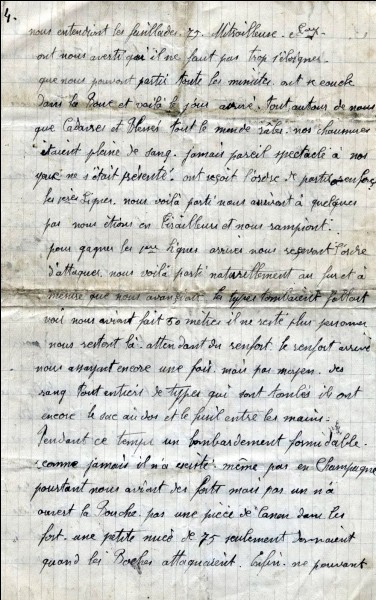 4.
nous entendions les fusillades. 75. Mitrailleuse. eux
ont nous averti qu'il ne faut pas trop s'éloigner
que nous pouvont partir toute les minutes. ont se couche
dans la Boue et voilà le jour arrivé. tout autour de nous
que Cadavres et blessés tout le monde râles. nos chaumures
étaient pleine de sang. jamais pareil spectacle à nos
yeux ne s'était présenté. ont reçoit l'ordre de partir
les 1ères Lignes. nous voilà parti nous arrivont à quelques
pas nous étions en Tirailleurs et nous rampiont.
pour gagner les 1ères lignes arrives nous reçevont l'ordre
d'attaquer. nous voilà parti naturellement au fur et à
mesure que nous avançiont. les types tombaient fallait
voir nous aviont fait 50 mètres il ne reste plus personne
nous restont là. attendant du renfort. le renfort arrive
nous assayont encore une fois. mais pas moyen. des
rang tout entiers de types qui sont tombés ils ont
encore le sac au dos et le fusil entre les mains.
Pendant ce temps un bombardement formidable.
comme jamais il n'a existé. même pas en Champagne
pourtant nous aviont des forts mais pas un n'a
ouvert la Bouche. pas une pièce de Canon dans les
fort. une petite pièce de 75 seulement donnaient
quand les Boches attaquaient. Enfin. ne pouvant